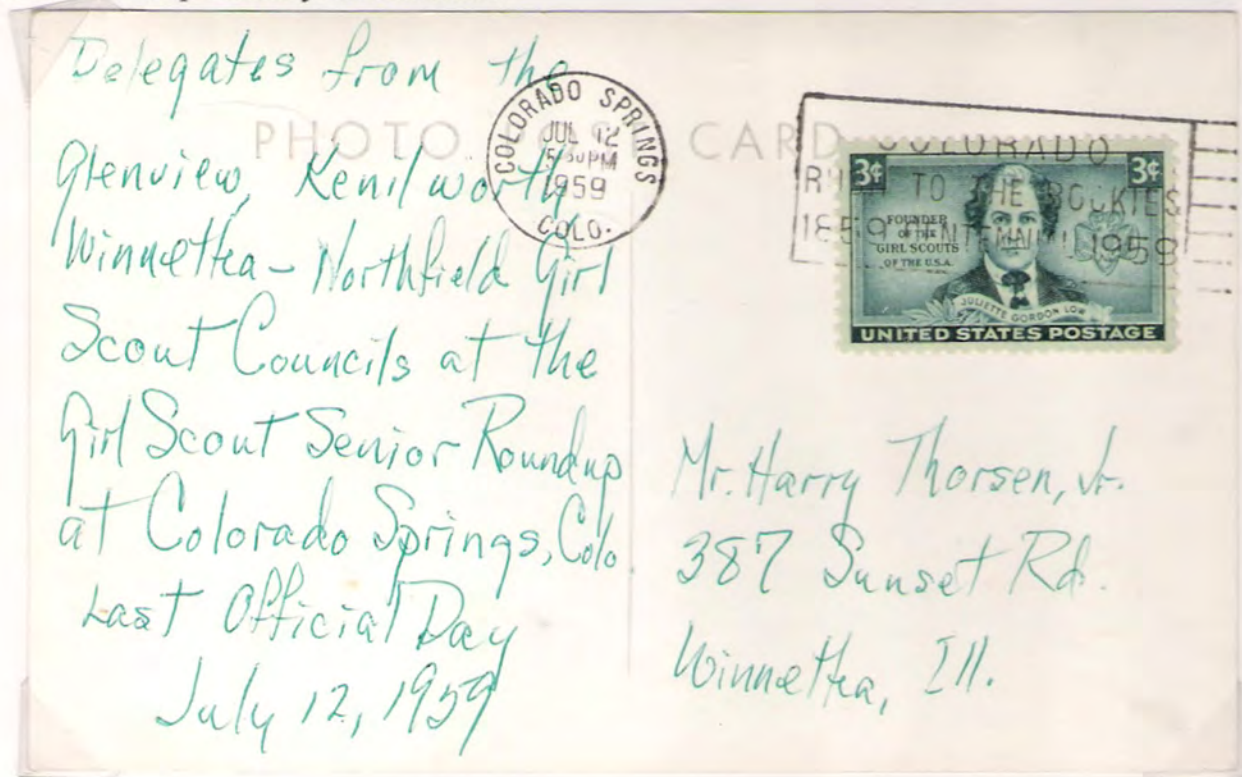 Delegates from the
Glenview, Kenilworth
Winnetka - Northfield Girl
Scout Councils at the
Girl Scout Senior Roundup
at Colorado Springs, Colo
Last Official Day
July 12, 1959
PHOTO POST CARD
COLORADO SPRINGS
JUL 12
PM
1959
COLO.
COLORADO
TO THE ROCKIES
1859 CENTENNIAL 1959
3¢ 3¢
FOUNDER
OF THE
GIRL SCOUTS
OF THE U.S.A.
JULIETTE GORDON LOW
UNITED STATES POSTAGE
Mr. Harry Thorsen, Jr.
387 Sunset Rd.
Winnetka, Ill.